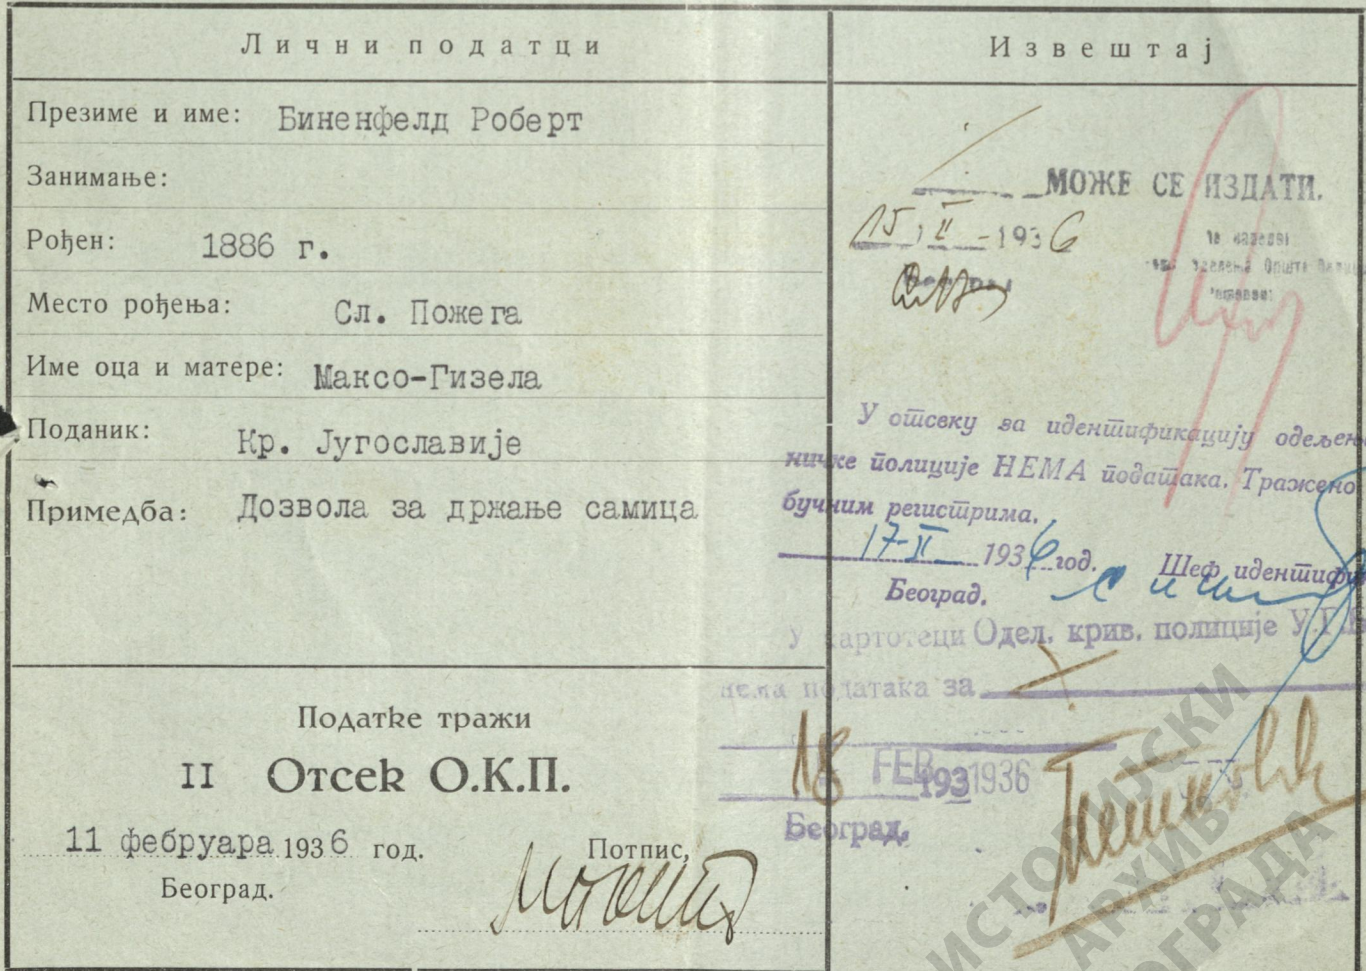 Лични податци
Презиме и име: Биненфелд Роберт
Занимање:
Рођен: 1886 г.
Место рођења: Сл. Пожега
Име оца и матере: Максо-Гизела
Поданик: Кр. Југославије
Примедба: Дозвола за држање самица
Податке тражи
II Отсек О.К.П.
11 фебруара 1936 год.
Београд.
Потпис,
Извештај
МОЖЕ СЕ ИЗДАТИ.
15 II - 1936
У отсеку за идентификацију одељењ
ничке полиције НЕМА података. Тражено
бучним регистрима.
17-II 1936 год. Шеф идентифи
Београд.
У картотеци Одел. крив. полиције У.Г.
нема података за
18 FEB 1936
193
Београд,
ИСТОРИЈСКИ
АРХИВ
ОГРАДА